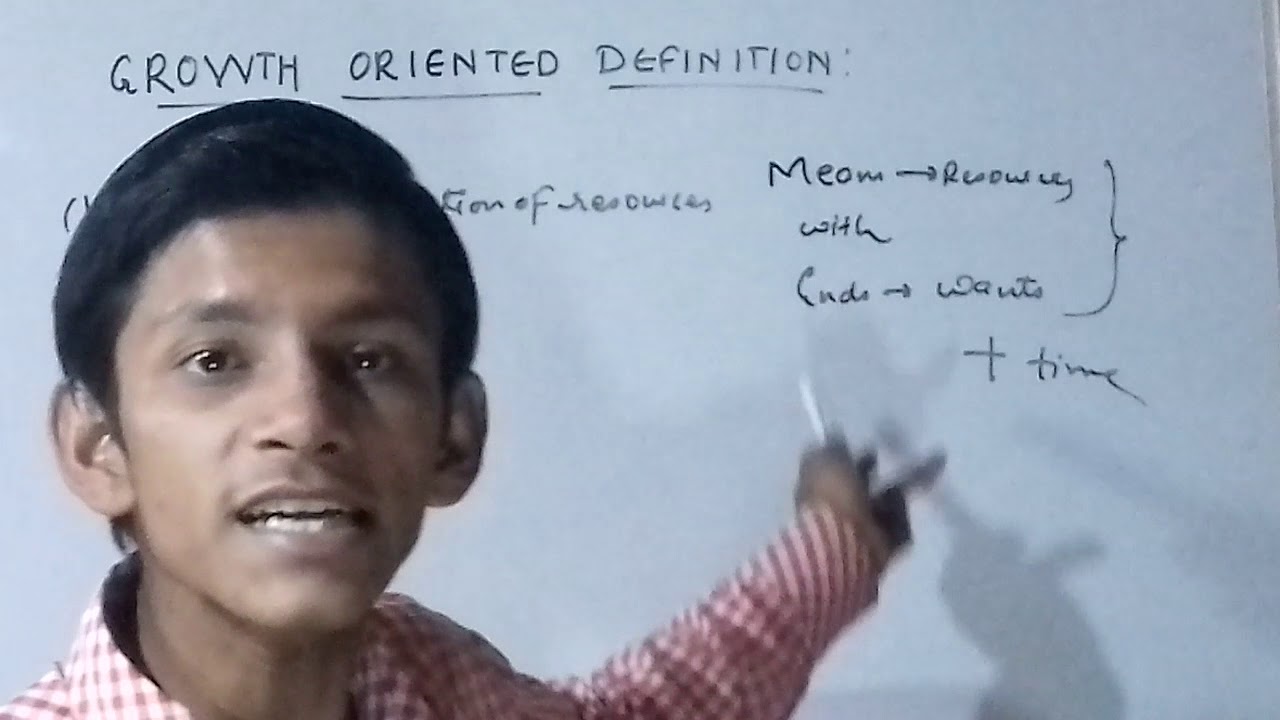 GROWTH ORIENTED DEFINITION:
(1 tion of resources
Means → Resources
with
Ends → wants
+ time